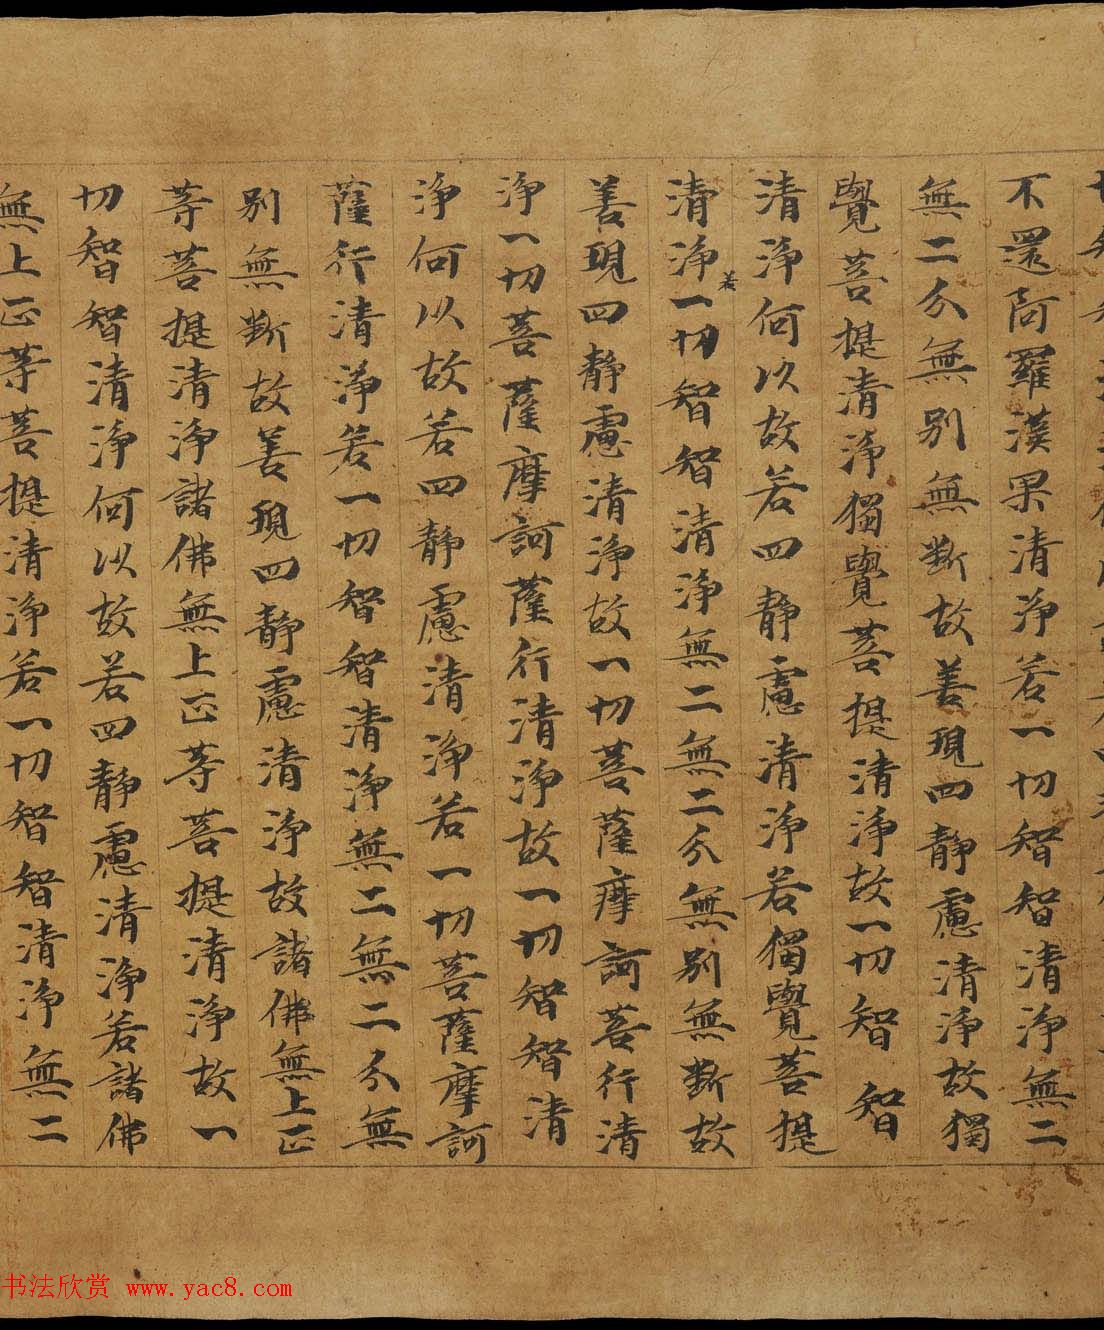 不還阿羅漢果清淨若一切智智清淨無二
無二分無別無斷故善現四靜慮清淨故獨
覺菩提清淨獨覺菩提清淨故一切智智
清淨何以故若四靜慮清淨若獨覺菩提
清淨若一切智智清淨無二無二分無別無斷故
善現四靜慮清淨故一切菩薩摩訶菩行清
淨一切菩薩摩訶薩行清淨故一切智智清
淨何以故若四靜慮清淨若一切菩薩摩訶
薩行清淨若一切智智清淨無二無二分無
別無斷故善現四靜慮清淨故諸佛無上正
等菩提清淨諸佛無上正等菩提清淨故一
切智智清淨何以故若四靜慮清淨若諸佛
無上正等菩提清淨若一切智智清淨無二
书法欣赏 www.yac8.com